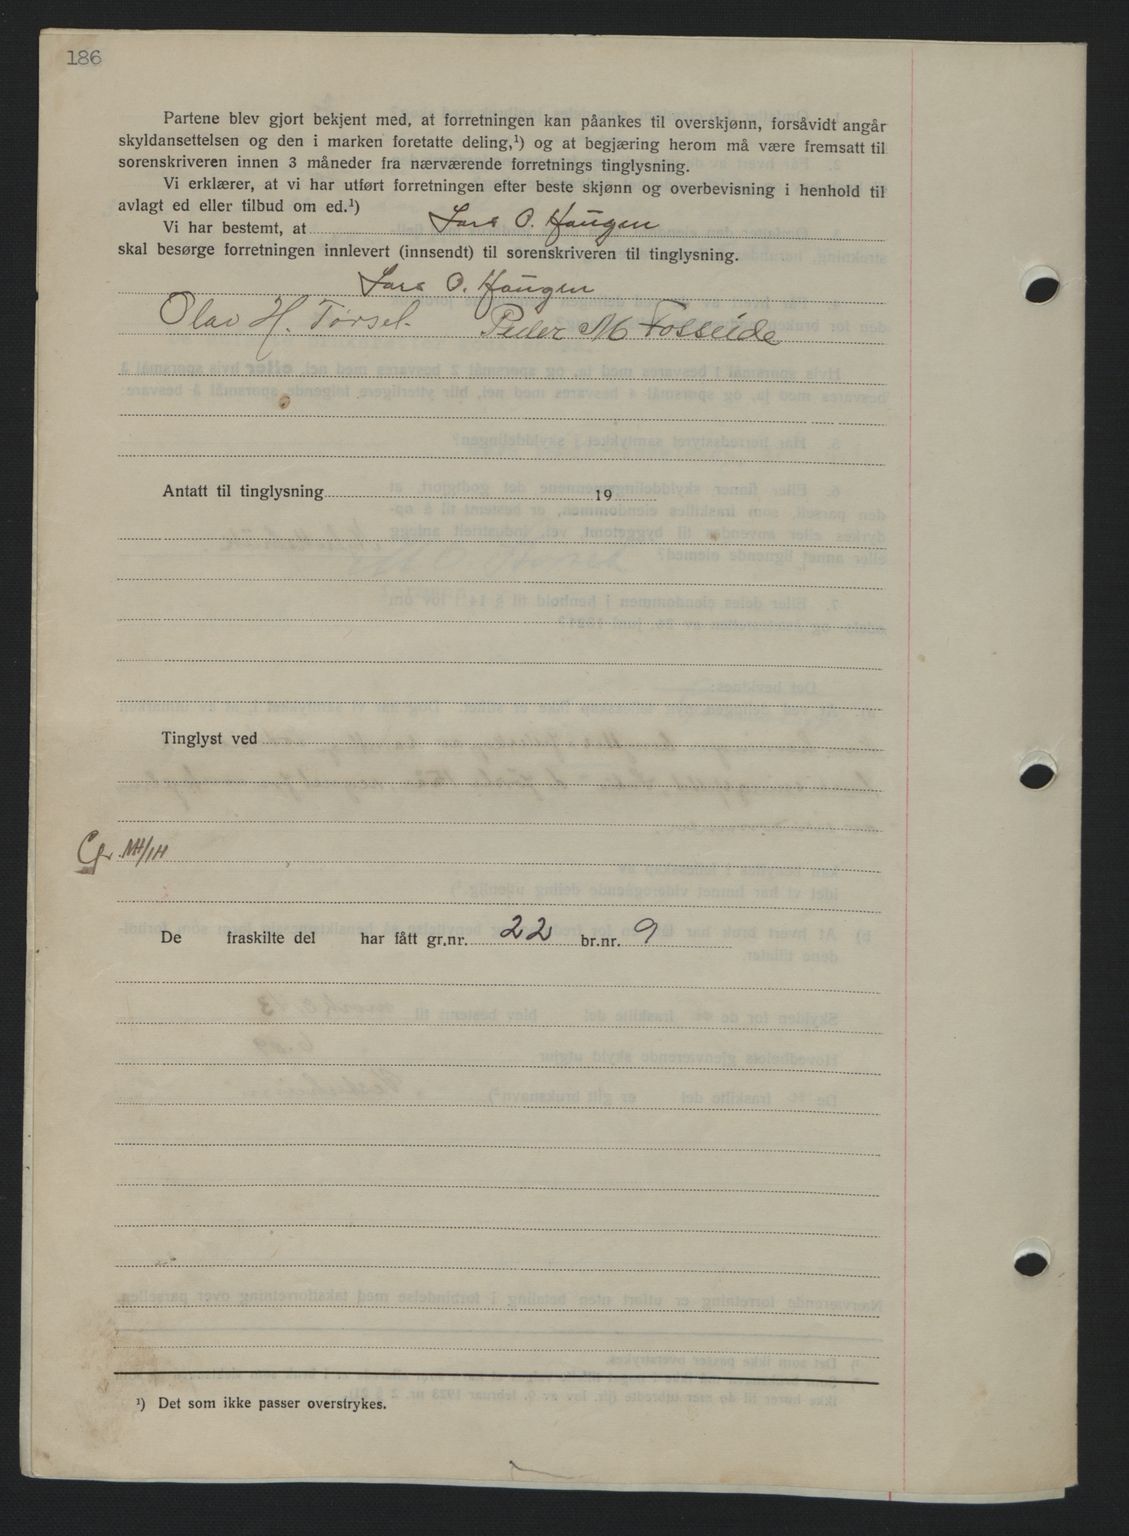 186
Partene blev gjort bekjent med, at forretningen kan påankes til overskjønn, forsåvidt angår
skyldansettelsen og den i marken foretatte deling,¹) og at begjæring herom må være fremsatt til
sorenskriveren innen 3 måneder fra nærværende forretnings tinglysning.
Vi erklærer, at vi har utført forretningen efter beste skjønn og overbevisning i henhold til
avlagt ed eller tilbud om ed.¹)
Vi har bestemt, at Lars O. Haugen
skal besørge forretningen innlevert (innsendt) til sorenskriveren til tinglysning.
Lars O. Haugen
Olav H. Torset. Peder M Fosseide
Antatt til tinglysning 19
Tinglyst ved
De fraskilte del har fått gr.nr. 22 br.nr. 9
¹) Det som ikke passer overstrykes.